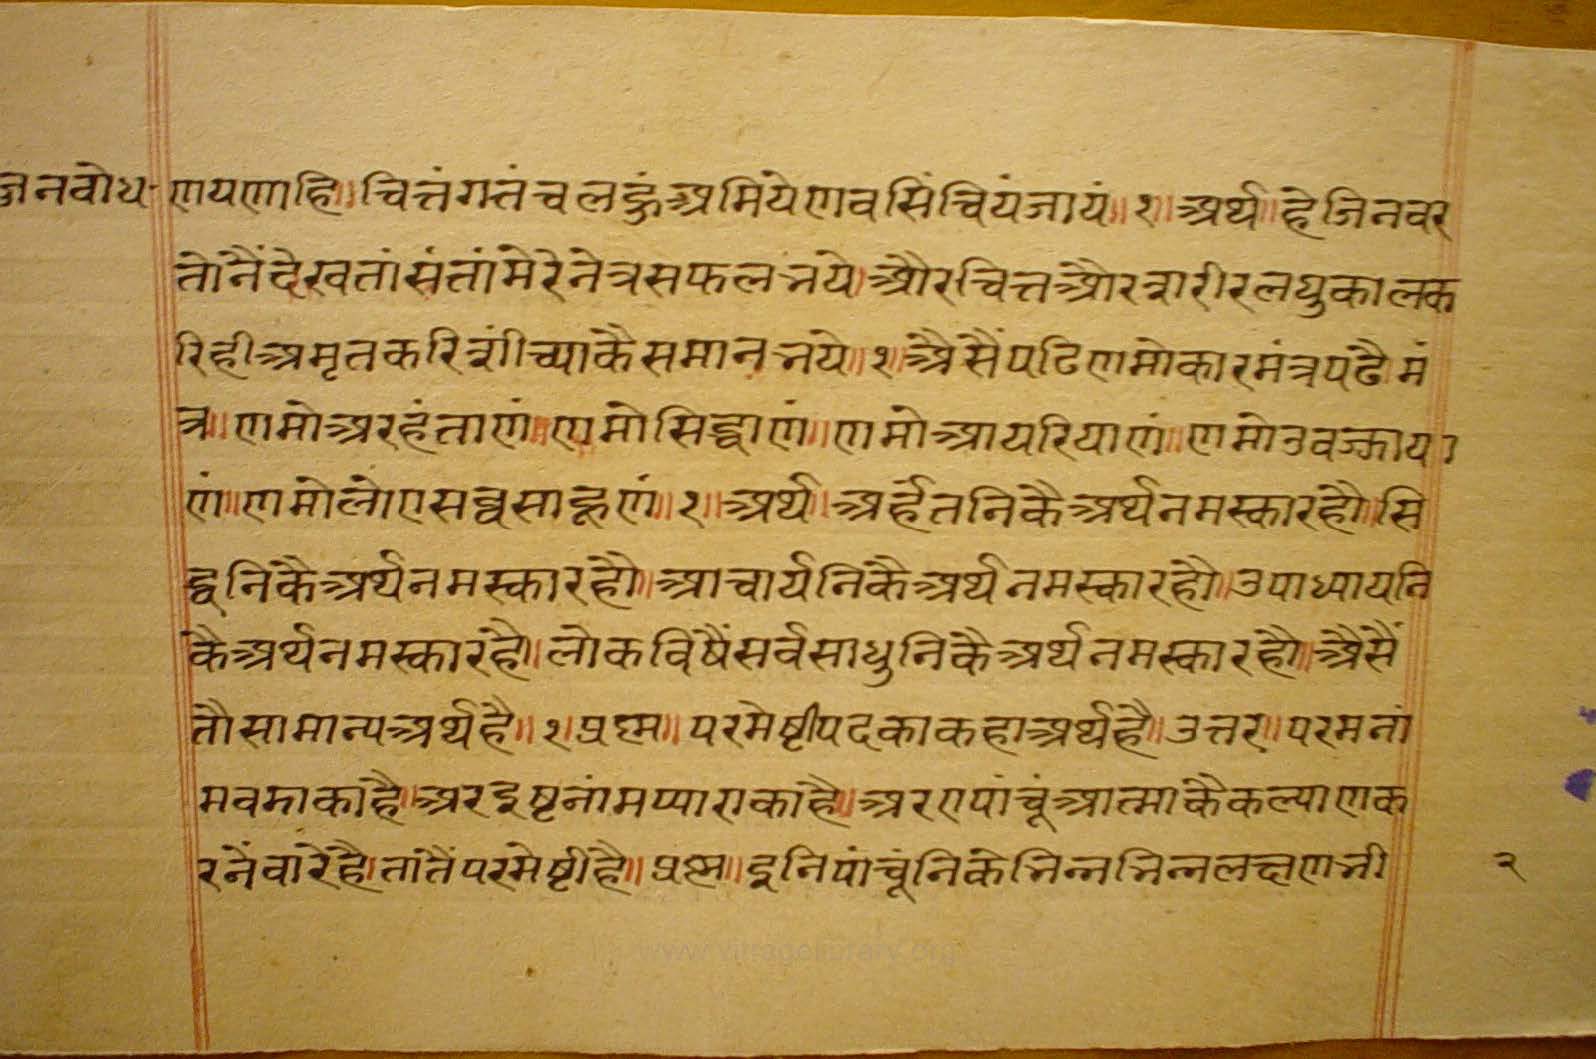 जैनबोध-
णयणाहि॥चित्तंगत्तंचलहुंअमियेणवसिंचियंजायं॥१॥अर्थ॥हेजिनवर
तोनैंदेखतांसंतांमेरेनेत्रसफलभये।औरचित्तऔरशरीरलघुकालक
रिहीअमृतकरिशींच्याकैसमानभये॥१॥अैसैंपढिणमोकारमंत्रपढैमं
त्र॥णमोअरहंताणं॥णमोसिद्धाणं॥णमोआयरियाणं॥णमोउवज्झाया
णं॥णमोलोएसव्वसाहूणं॥१॥अर्थ।अर्हंतनिकैअर्थनमस्कारहौ॥सि
द्धनिकैअर्थनमस्कारहौ॥आचार्यनिकैअर्थनमस्कारहौ॥उपाध्यायनि
कैअर्थनमस्कारहौ॥लोकविषैंसर्वसाधुनिकैअर्थनमस्कारहौ॥अैसैं
तौसामान्यअर्थहै॥१।प्रश्न॥परमेष्टीपदकाकहाअर्थहै॥उत्तर॥परमनां
मवडाकाहै।अरइष्टनांमप्याराकाहै॥अरएपांचूंआत्माकैकल्याणक
रनेंवारेहै।तांतैंपरमेष्टीहै॥प्रश्न॥इनिपांचूंनिकेभिन्नभिन्नलक्षणभी
२
www.vitragelibrary.org